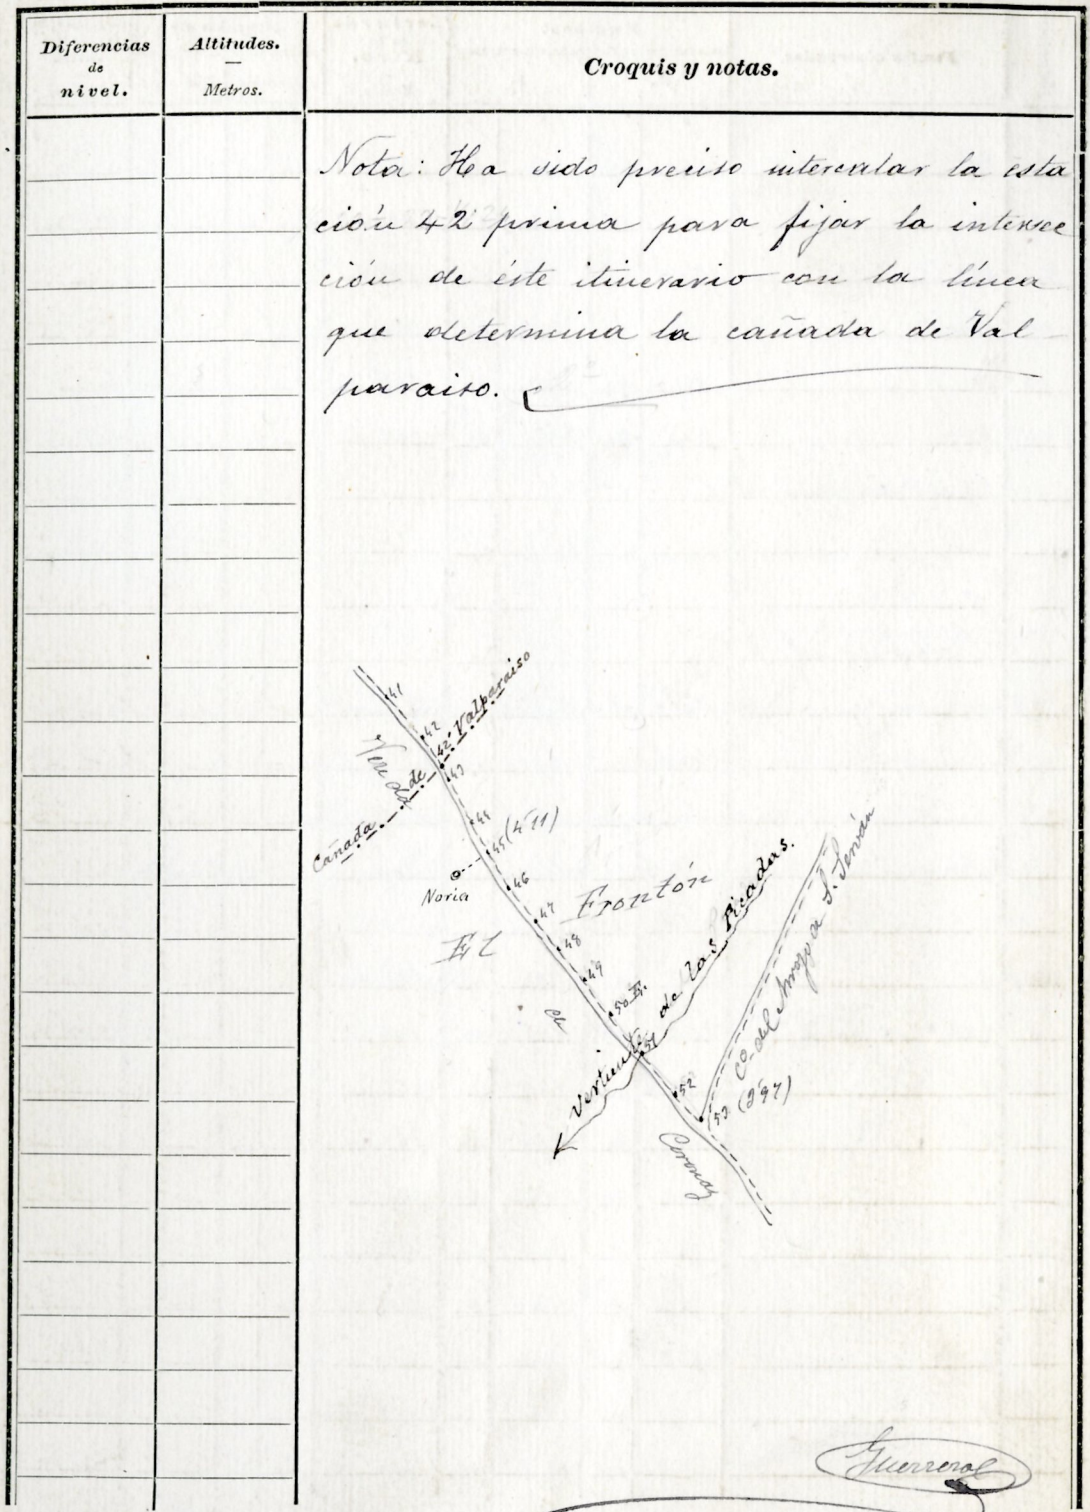 Diferencias
de
nivel.
Altitudes.
Metros.
Croquis y notas.
Nota: Ha sido preciso intercalar la esta
ción 42 prima para fijar la intersec
ción de éste itinerario con la línea
que determina la cañada de Val
paraiso.
41
42
42'
43
Cañada de Valparaiso
Vereda
44
45 (411)
Noria
46
47
48
49
El Frontón
50
51
de
Vertiente de las Picadas.
52
53 (397)
Co. del Arroyo a S. Serván
Coronas
Guerrero